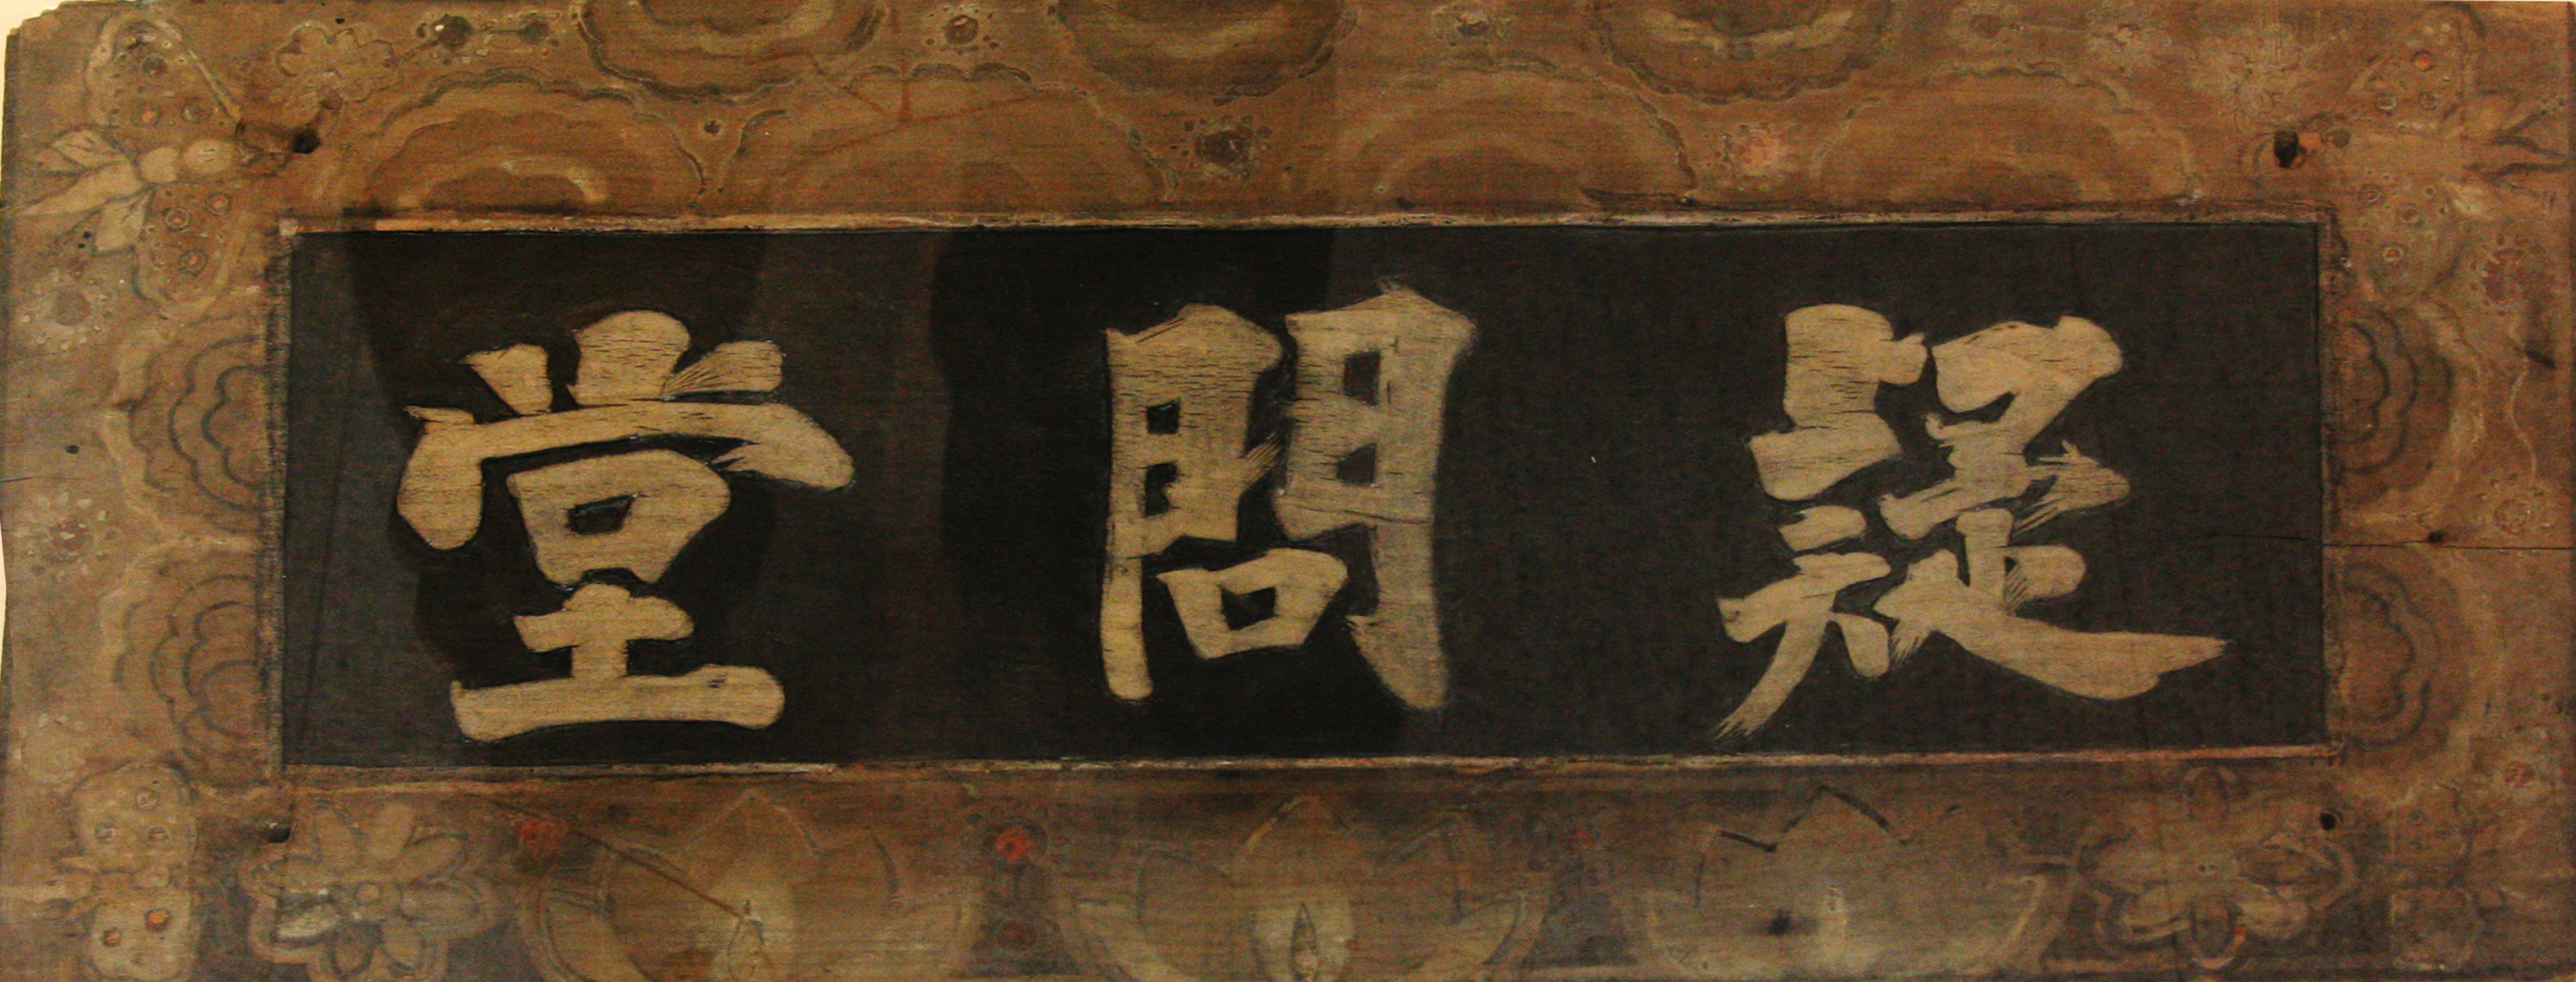 疑問堂